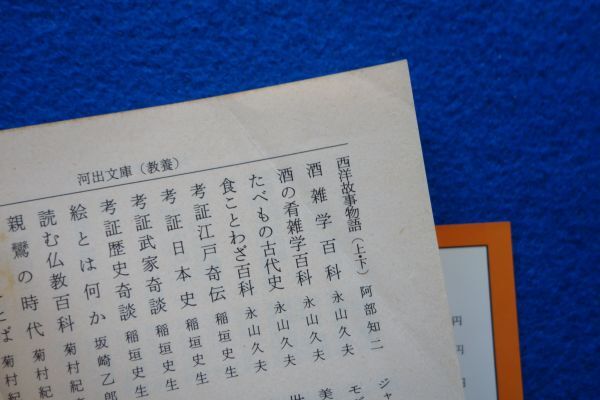 河出文庫(教養)
西洋故事物語(上・下) 阿部知二
酒雑学百科 永山久夫
酒の肴雑学百科 永山久夫
たべもの古代史 永山久夫
食ことわざ百科 永山久夫
考証江戸奇伝 稲垣史生
考証日本史 稲垣史生
考証武家奇談 稲垣史生
考証歴史奇談 稲垣史生
絵とは何か 坂崎乙郎
読む仏教百科 菊村紀
親鸞の時代 菊村紀
ば 菊村
ジャ
モ
美
円
円